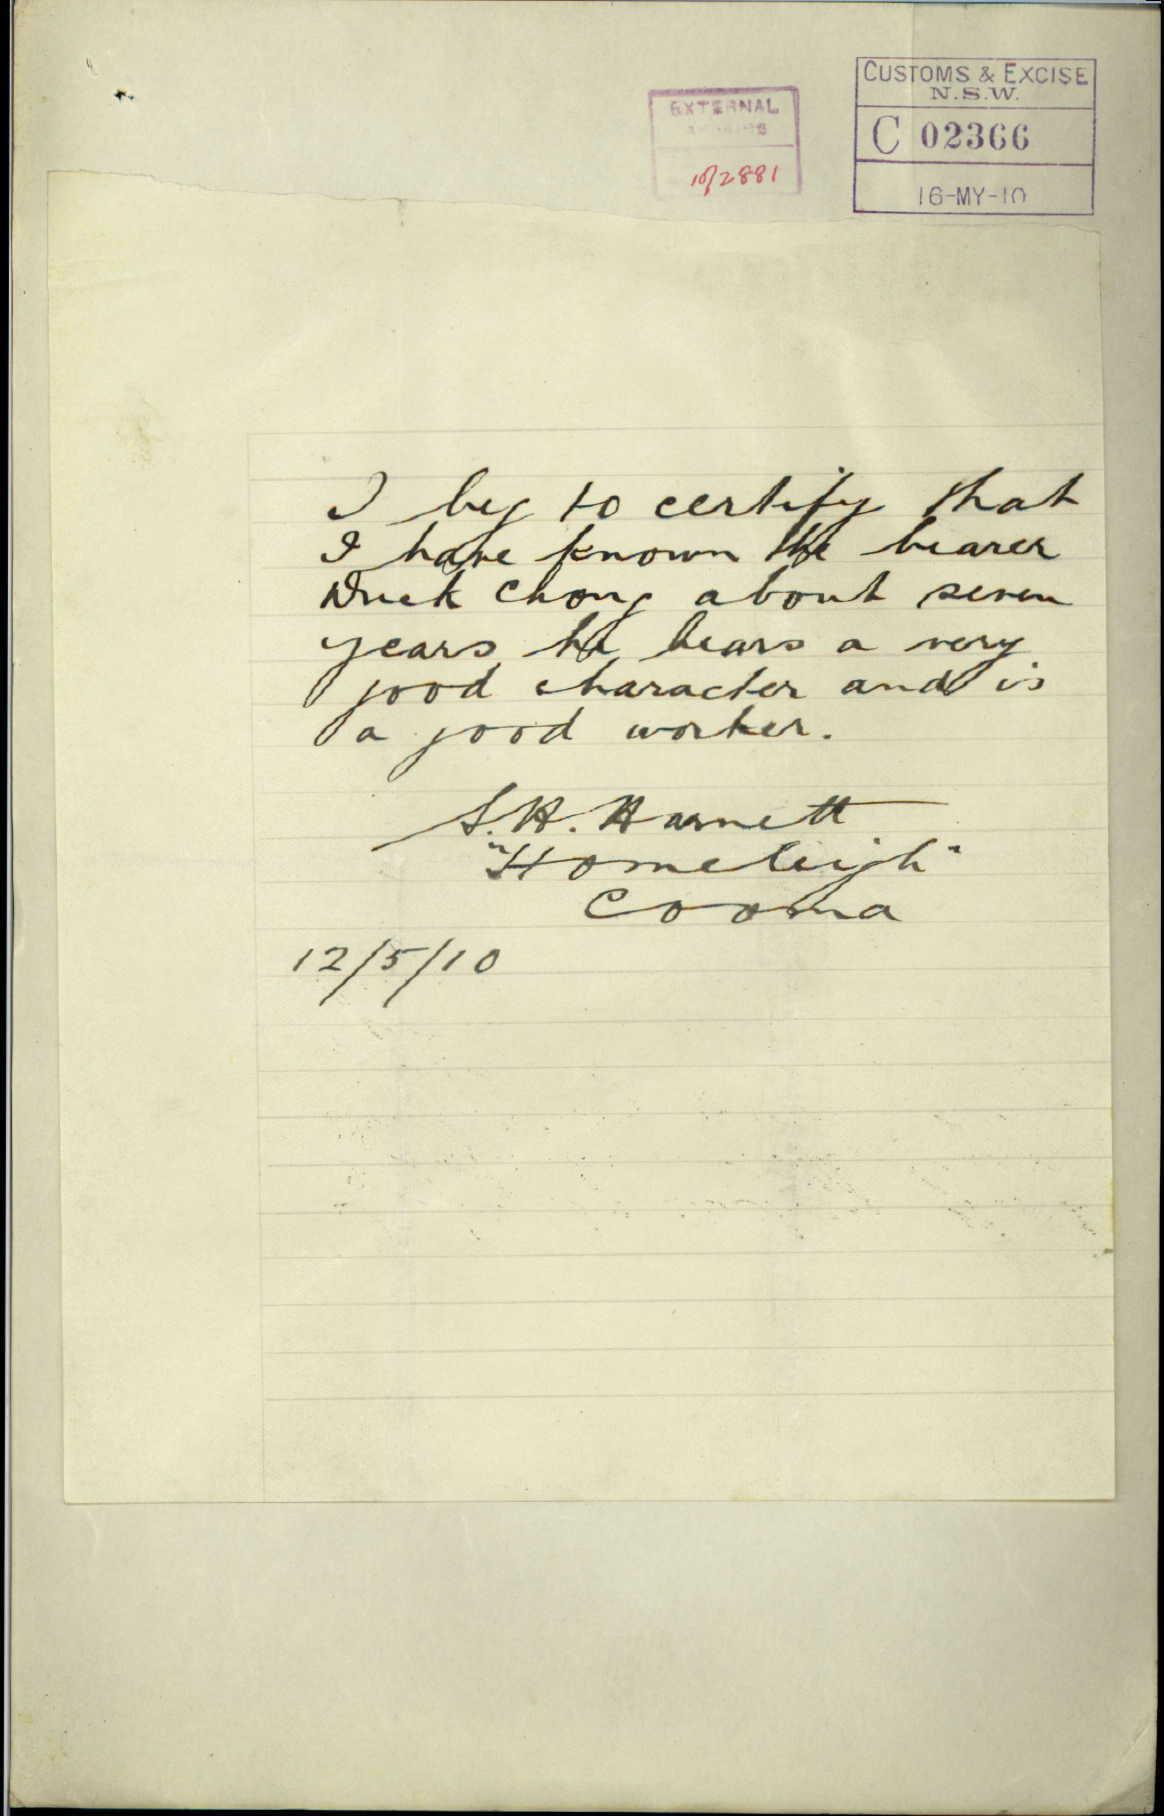 EXTERNAL
10/2881
CUSTOMS & EXCISE
N.S.W.
C 02366
16-MY-10
I beg to certify that
I have known the bearer
Duck Chong about seven
years he bears a very
good character and is
a good worker.
S. H. Harnett
"Homeleigh"
Cooma
12/5/10